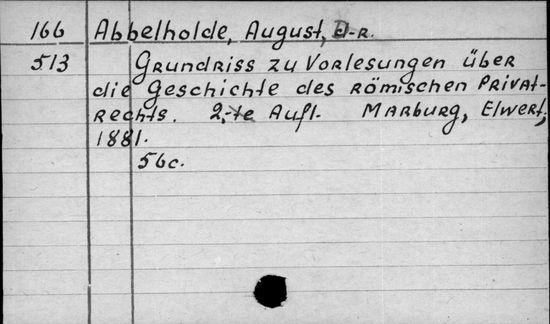 166 Abbelholde, August, D-R.
513 Grundriss zu Vorlesungen über
die Geschichte des Römischen Privat-
Rechts. 2,-te Aufl. Marburg, Elwert,
1881.
56c.